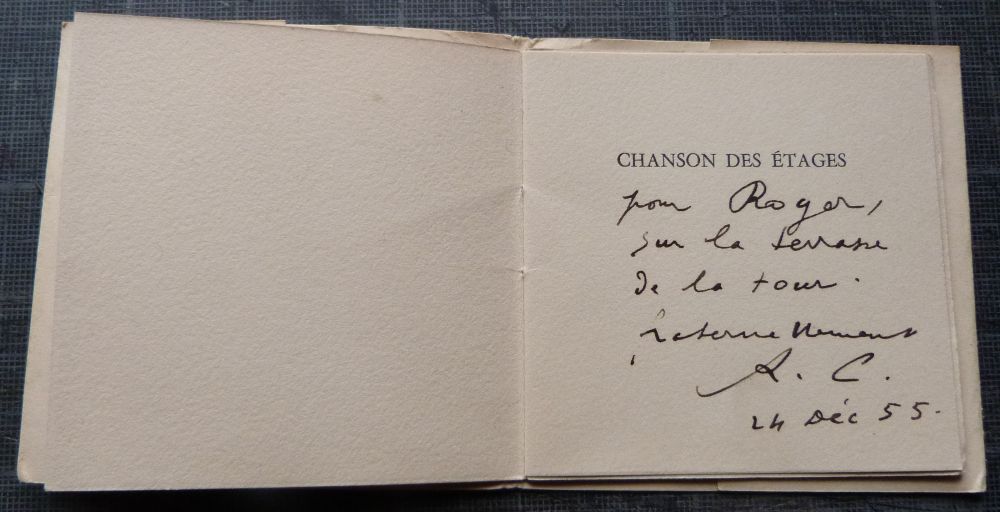 CHANSON DES ÉTAGES
pour Roger,
sur la terrasse
de la tour.
fraternellement
A. C.
24 Déc 55.